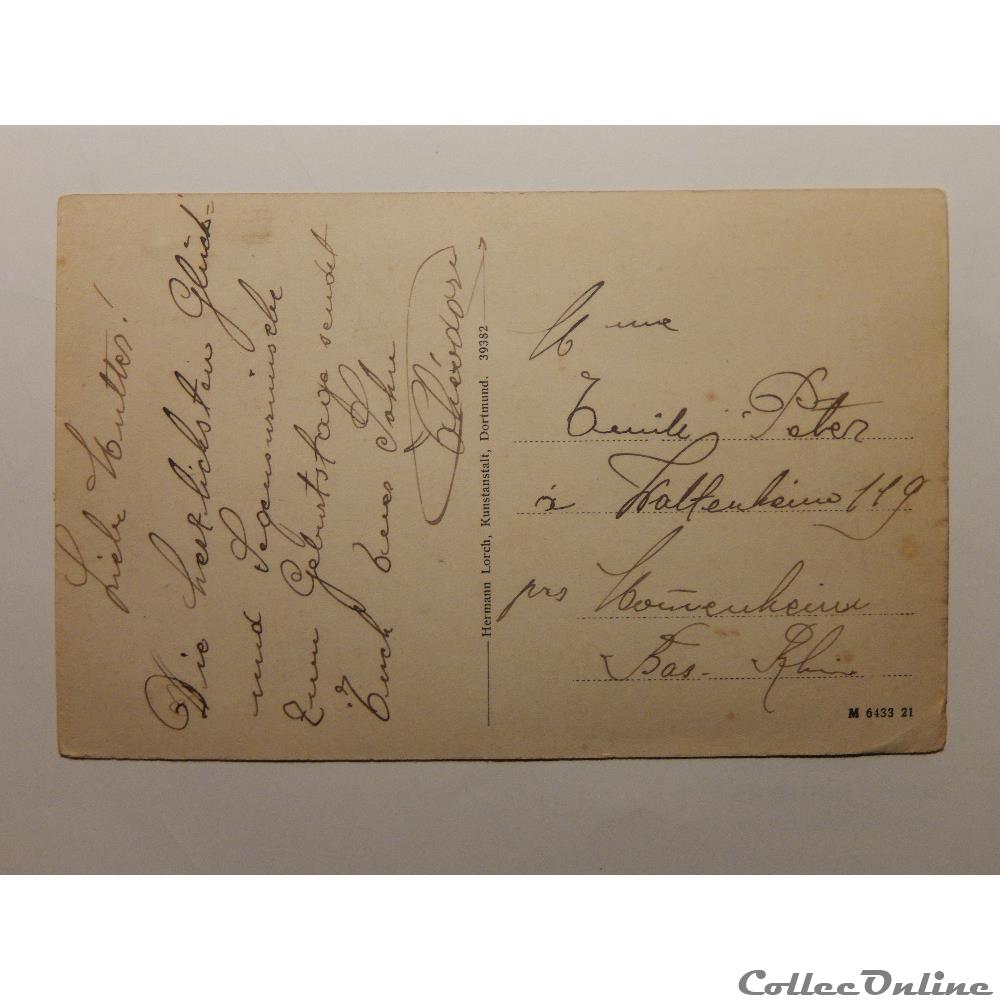 Liebe Mutter!
Die herzlichsten Glück-
und Segenswünsche
zum Geburtstage sendet
Euch Euer Sohn
Théodore
Hermann Lorch, Kunstanstalt, Dortmund. 39382
Mme
Emile Peter
à Waltenheim 119
prs Mommenheim
Bas-Rhin
M 6433 21
CollecOnline